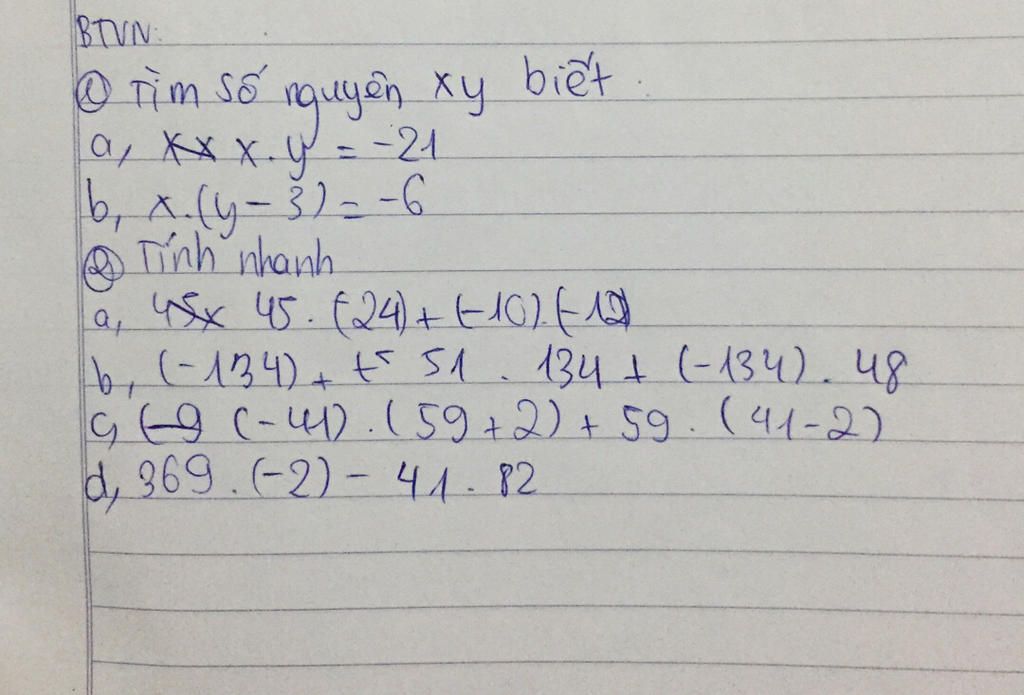 BTVN:
① Tìm số nguyên xy biết.
a, x.y = -21
b, x.(y-3) = -6
② Tính nhanh
a, 45. (-24)+(-10).(-12)
b, (-134) + 51 . 134 + (-134) . 48
c, (-41) . (59+2) + 59 . (41-2)
d, 369 . (-2) - 41 . 82